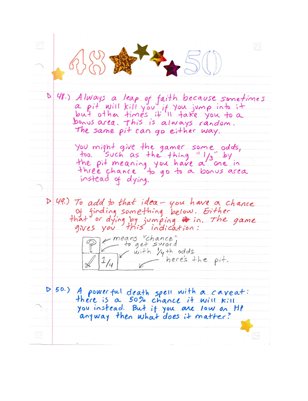 48 50
48.) Always a leap of faith because sometimes
a pit will kill you if you jump into it
but other times it'll take you to a
bonus area. This is always random.
The same pit can go either way.
You might give the gamer some odds,
too. Such as the thing "1/3" by
the pit meaning you have a one in
three chance to go to a bonus area
instead of dying.
49.) To add to that idea - you have a chance
of finding something below. Either
that or dying by jumping in. The game
gives you this indication:
means "chance"
to get sword
with 1/4th odds
? 1/4
here's the pit.
50.) A powerful death spell with a caveat:
there is a 50% chance it will kill
you instead. But if you are low on HP
anyway then what does it matter?